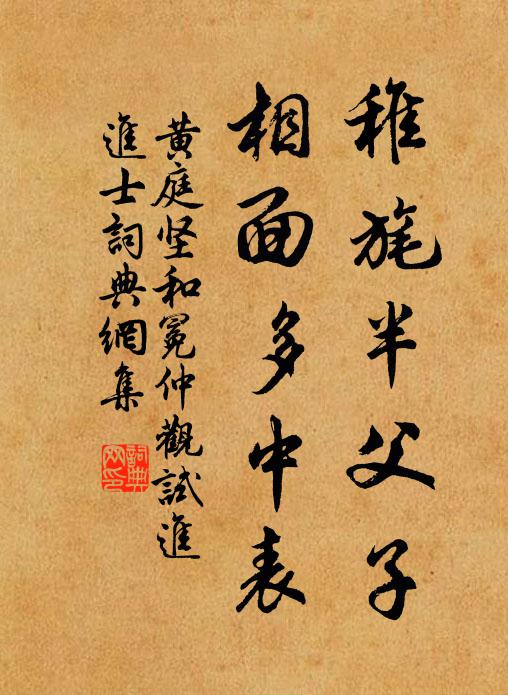 稚旄半父子
相面多中表
黄庭坚和冕仲觀試進
進士詞典網集
詞典
网印